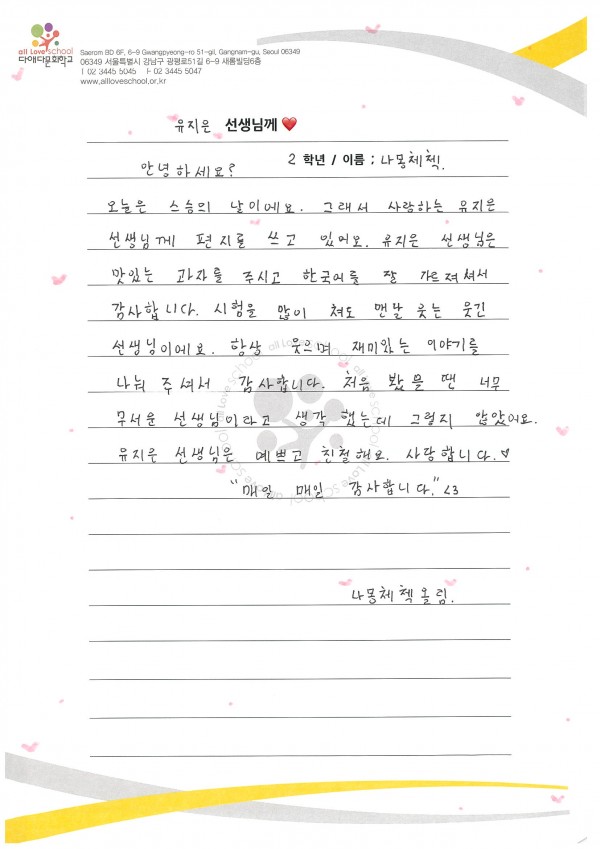 all Love school
다애다문화학교
Saerom BD 6F, 6-9 Gwangpyeong-ro 51-gil, Gangnam-gu, Seoul 06349
06349 서울특별시 강남구 광평로51길 6-9 새롬빌딩6층
T 02 3445 5045 F 02 3445 5047
www.allloveschool.or.kr
유지은 선생님께 ❤️
2 학년 / 이름 : 나몽체첵.
안녕하세요?
오늘은 스승의 날이에요. 그래서 사랑하는 유지은
선생님께 편지를 쓰고 있어요. 유지은 선생님은
맛있는 과자를 주시고 한국어를 잘 가르져쳐서
감사합니다. 시험을 많이 쳐도 맨날 웃는 웃긴
선생님이에요. 항상 웃으며 재미있는 이야기를
나눠 주셔서 감사합니다. 처음 봤을 땐 너무
무서운 선생님이라고 생각 했는데 그렇지 않았어요.
유지은 선생님은 예쁘고 친절해요. 사랑합니다.♥
"매일 매일 감사합니다." <3
나몽체첵 올림.